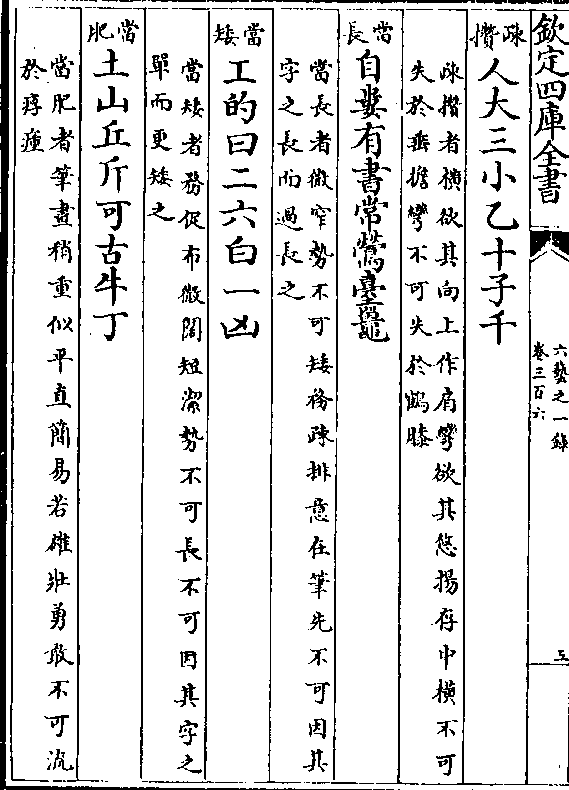 欽定四庫全書
六藝之一錄
卷三百六
五
疎攢
人大三小乙十子千
疎攢者橫欲其向上作肩彎欲其悠揚存中橫不可
失於垂擔彎不可失於鶴膝
當長
自有書常鶯臺鼉
當長者微窄勢不可矮務疎排意在筆先不可因其
字之長而過長之
當矮
工的曰二六白一凶
當矮者務促布微闊短潔勢不可長不可因其字之
單而更矮之
當肥
土山丘斤可古牛丁
當肥者筆畫稍重似平直簡易若確壯勇敢不可流
於瘇